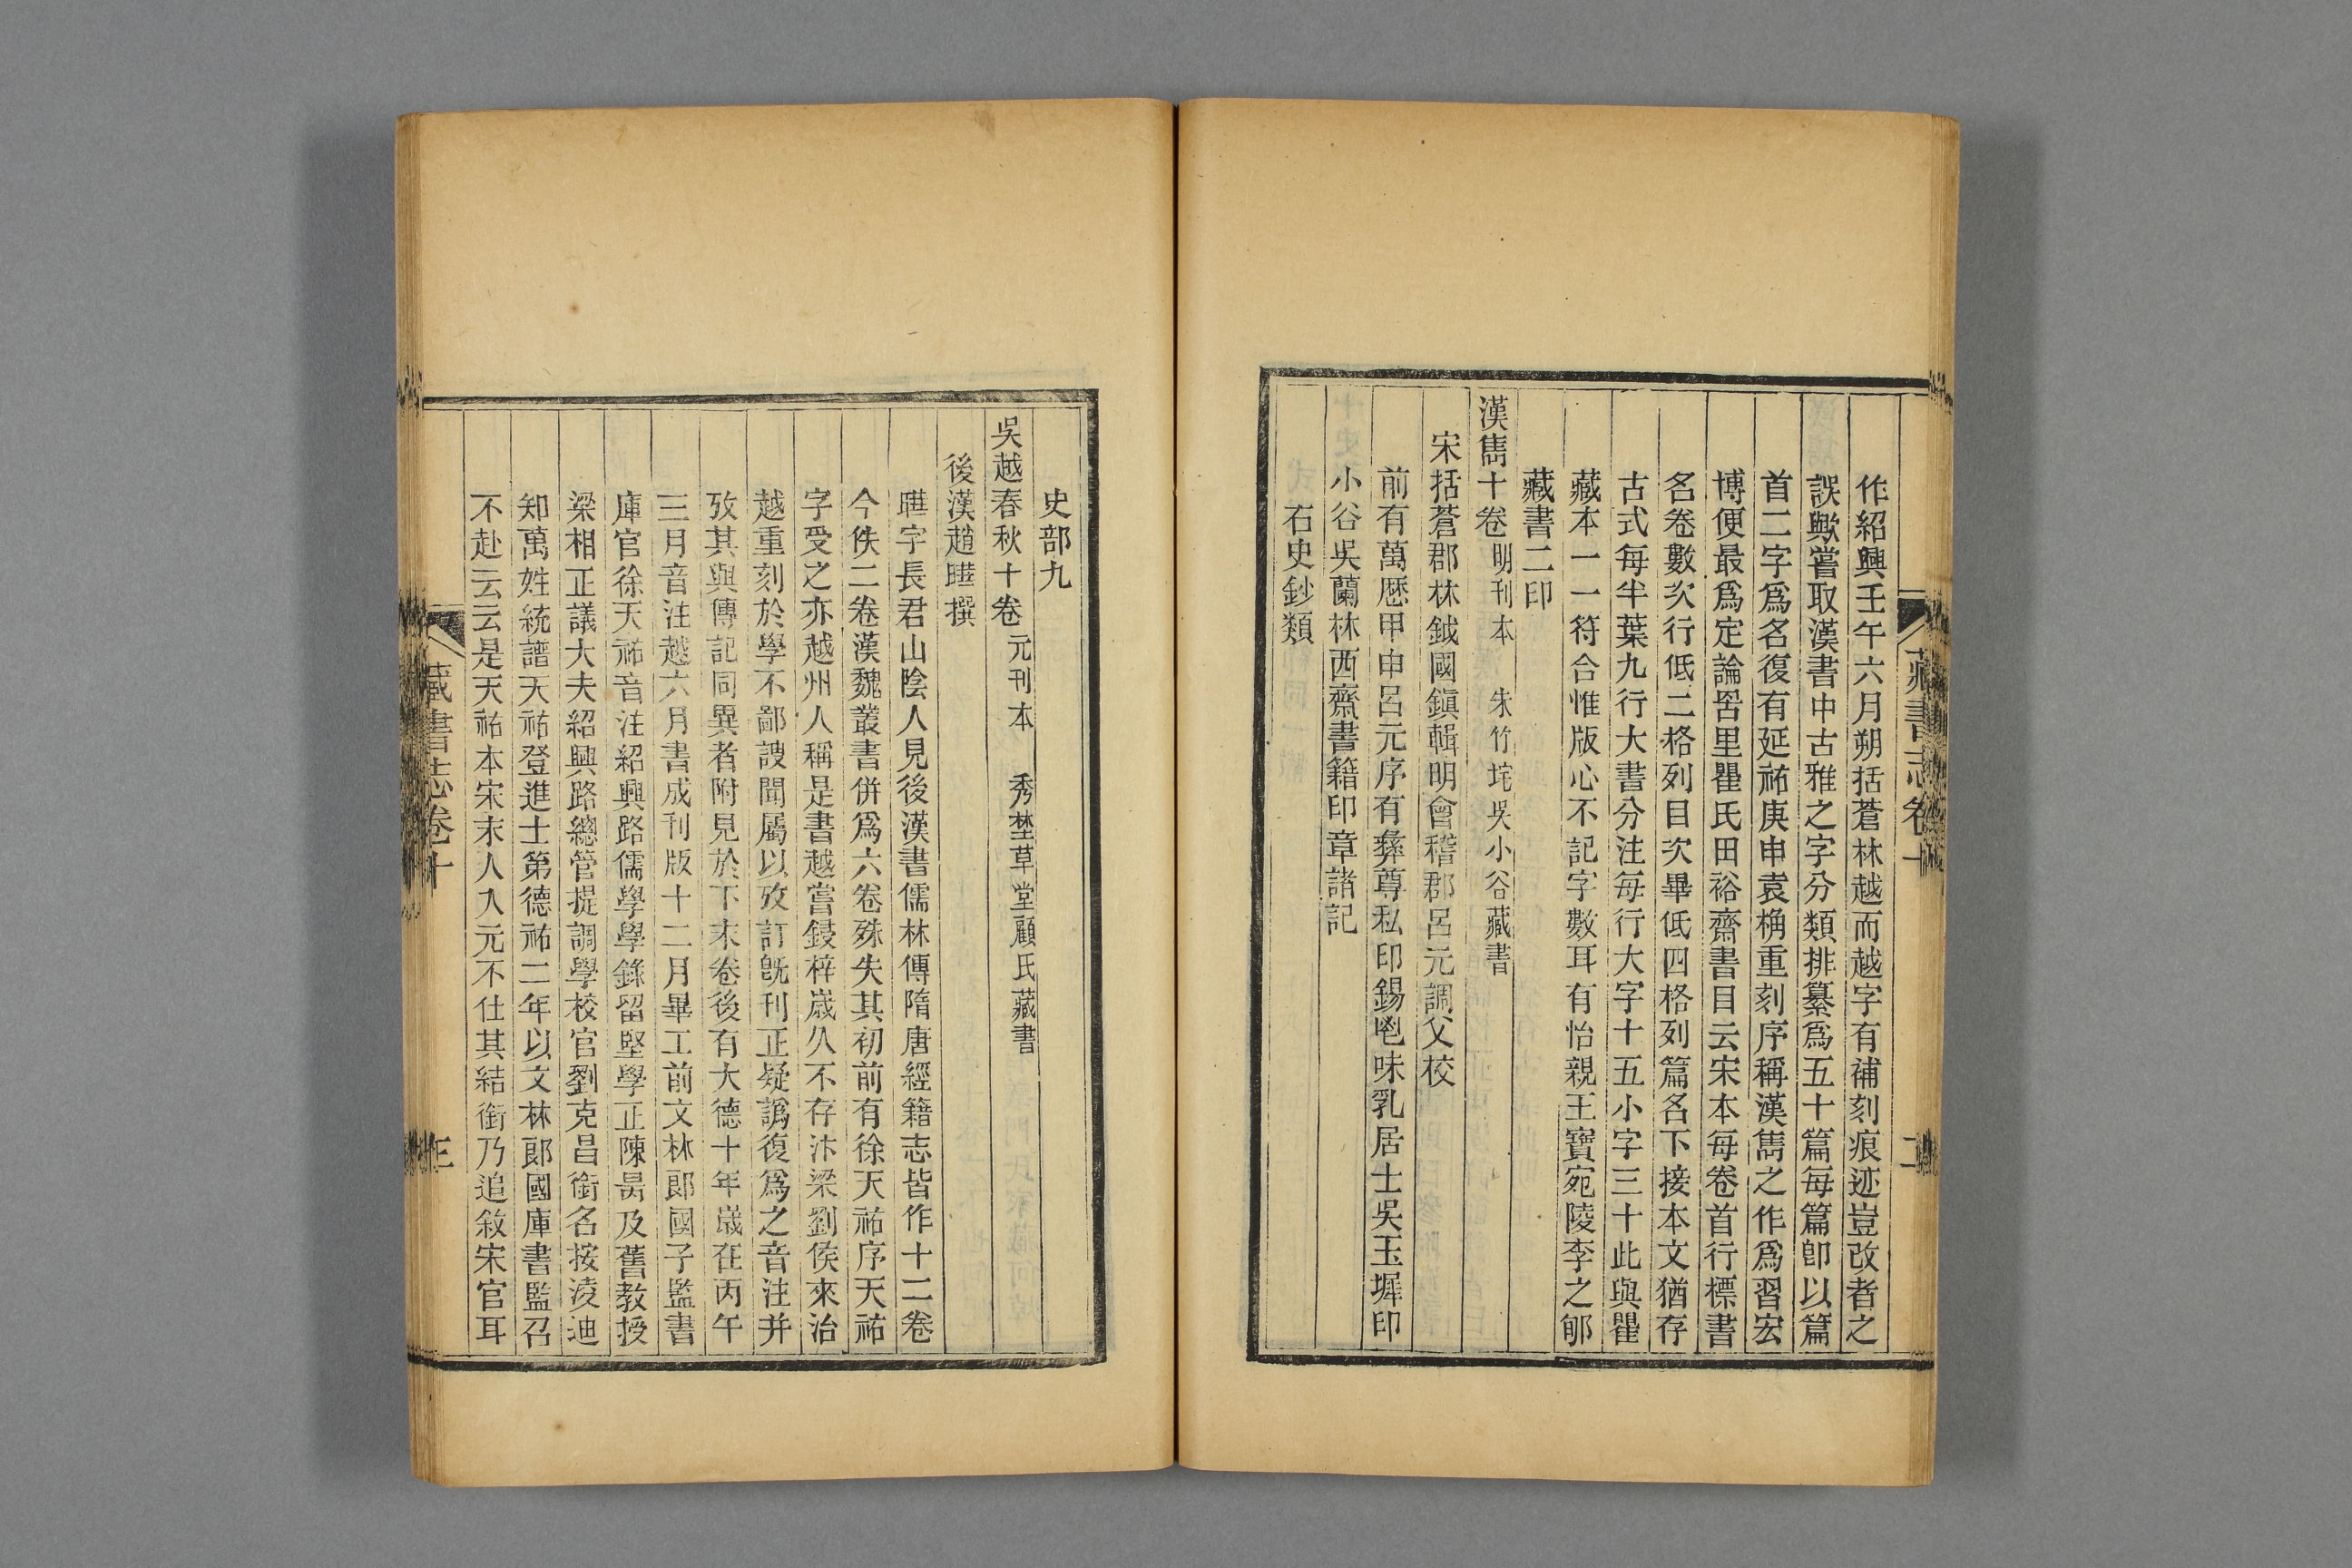 作紹興壬午六月朔括蒼林越而越字有補刻痕迹豈改者之
誤歟嘗取漢書中古雅之字分類排纂爲五十篇每篇卽以篇
首二字爲名復有延祐庚申袁桷重刻序稱漢雋之作爲習宏
博便最爲定論罟里瞿氏田裕齋書目云宋本每卷首行標書
名卷數次行低二格列目次畢低四格列篇名下接本文猶存
古式每半葉九行大書分注每行大字十五小字三十此與瞿
藏本一一符合惟版心不記字數耳有怡親王寶宛陵李之郇
藏書二印
漢雋十卷 明刊本 朱竹垞吳小谷藏書
宋括蒼郡林鉞國鎮輯明會稽郡呂元調父校
前有萬歷甲申呂元序有彝尊私印錫鬯味乳居士吳玉墀印
小谷吳蘭林西齋書籍印章諸記
石史鈔類
史部九
吳越春秋十卷 元刊本 秀埜草堂顧氏藏書
後漢趙曄撰
曄字長君山陰人見後漢書儒林傳隋唐經籍志皆作十二卷
今佚二卷漢魏叢書併爲六卷殊失其初前有徐天祐序天祐
字受之亦越州人稱是書越嘗鋟梓歲久不存汴梁劉侯來治
越重刻於學不鄙謏聞屬以攷訂旣刊正疑譌復爲之音注并
攷其與傳記同異者附見於下末卷後有大德十年歲在丙午
三月音注越六月書成刊版十二月畢工前文林郎國子監書
庫官徐天祐音注紹興路儒學學錄留堅學正陳昺及舊教授
梁相正議大夫紹興路總管提調學校官劉克昌銜名按淩迪
知萬姓統譜天祐登進士第德祐二年以文林郎國庫書監召
不赴云云是天祐本宋末人入元不仕其結銜乃追敘宋官耳
藏書志卷十